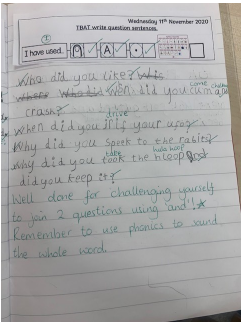 Wednesday 11th November 2020
TBAT write question sentences.
I have used. A .
Who did you like?
Where did you
came
crash?
drive
when did you your ufo?
Why did you speek to the rabit?
take hula hoop
Why did you took the hloop and
did you keep it?
Well done for challenging yourself
to join 2 questions using and!
Remember to use phonics to sound
the whole word.